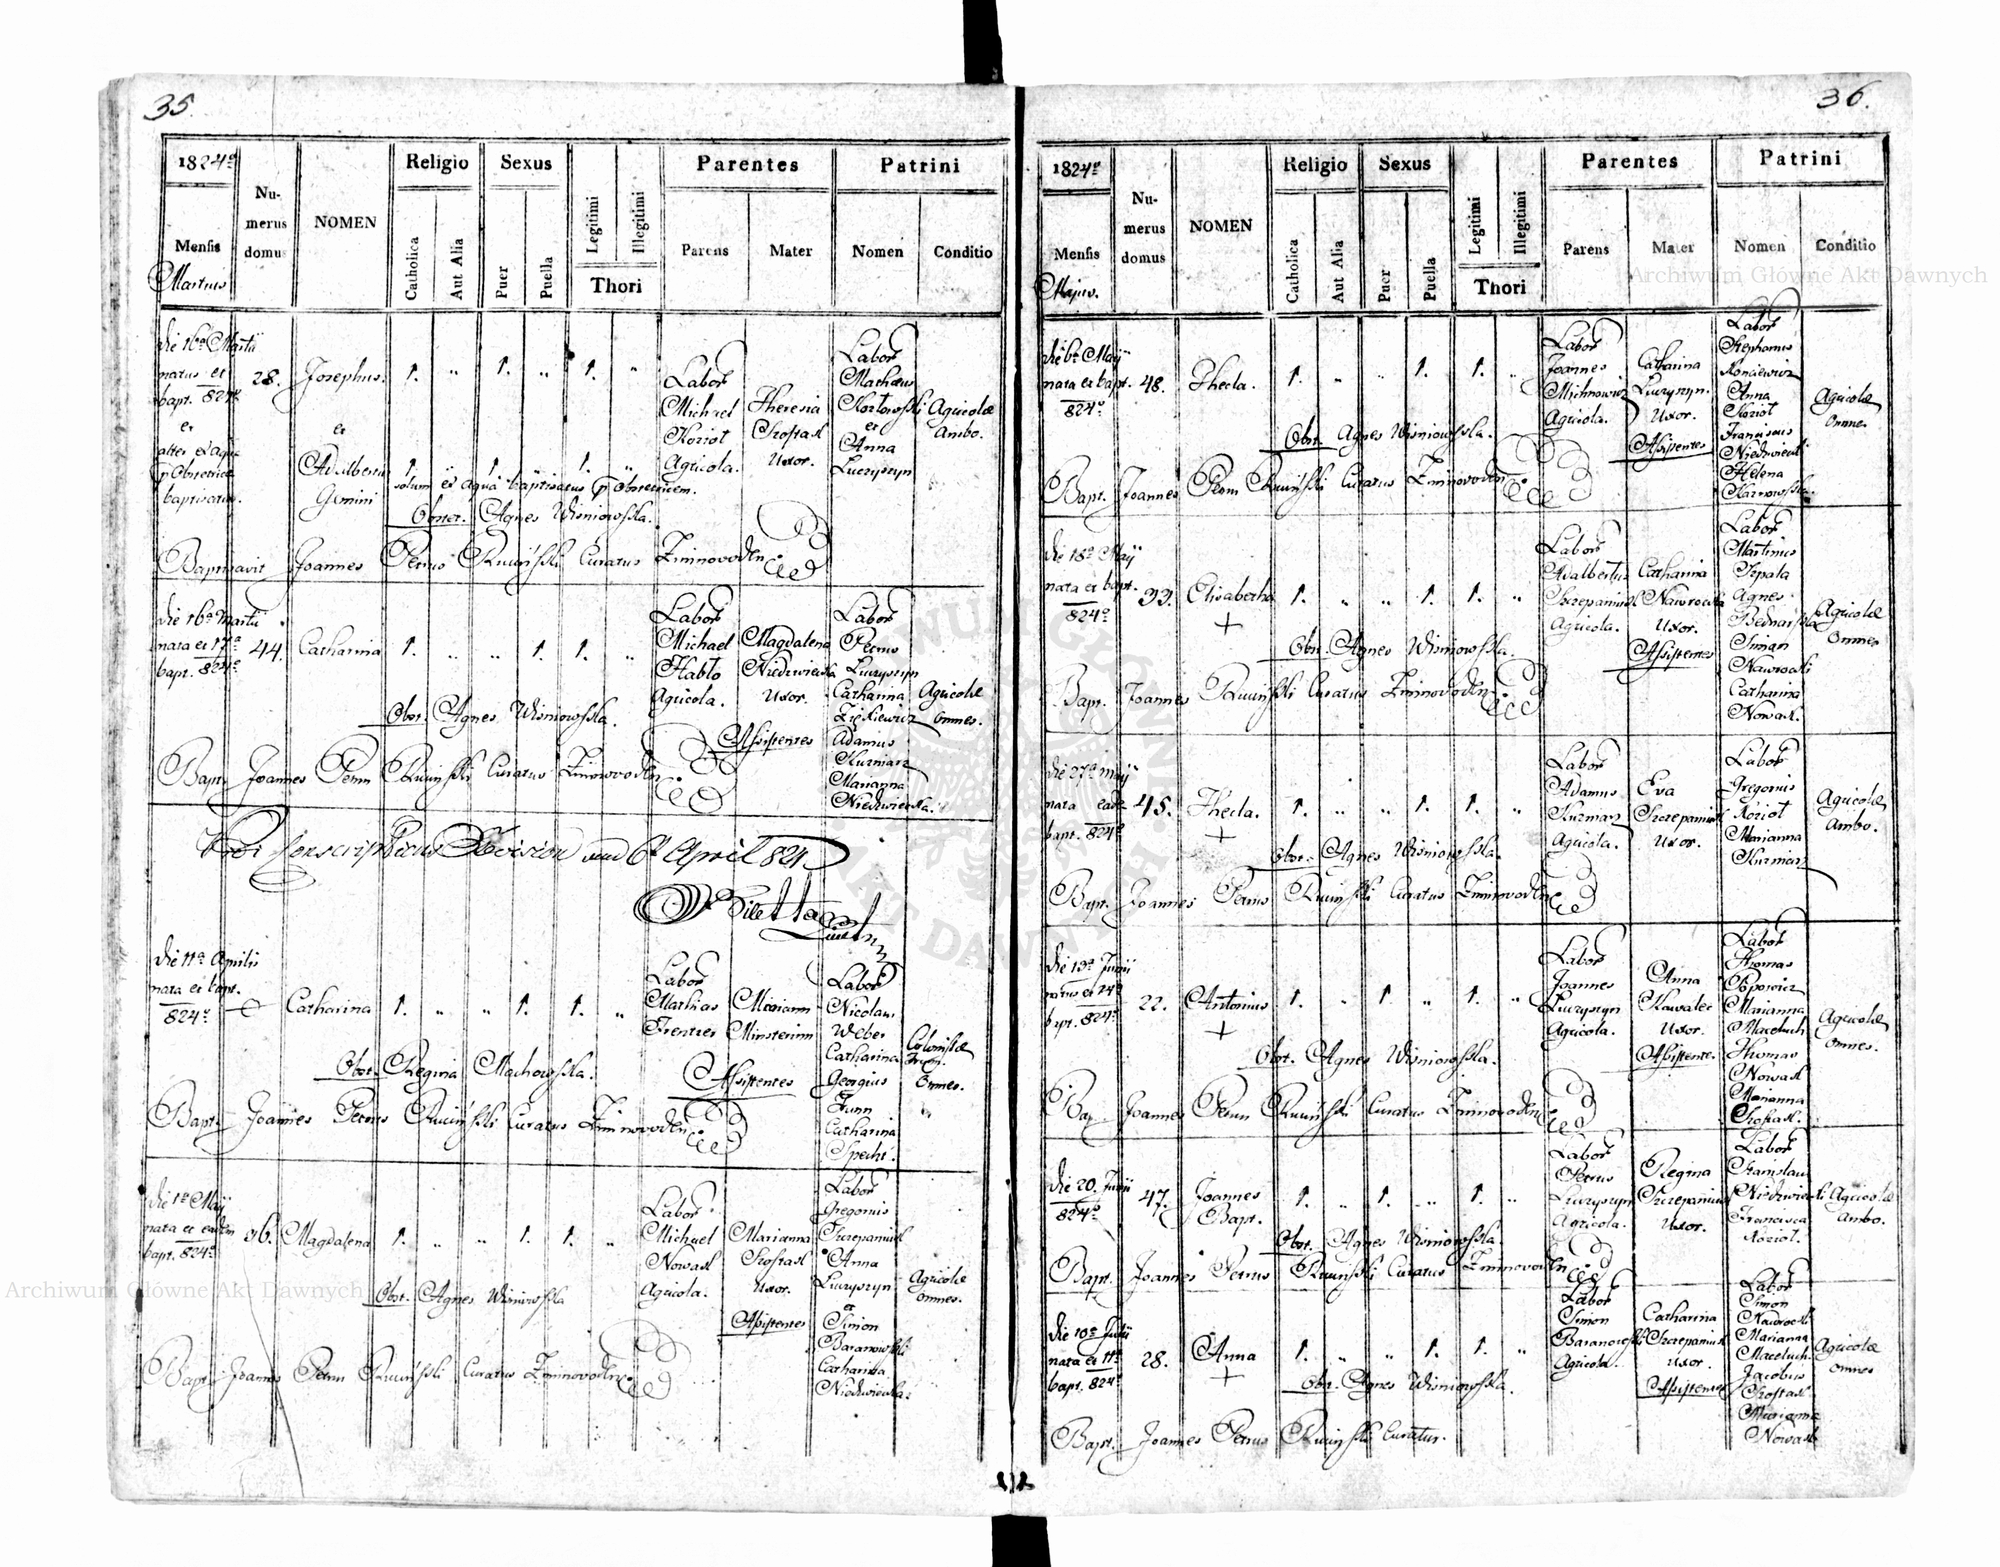 35
1824º
Religio
Sexus
Parentes
Patrini
Nu-
merus
domus
NOMEN
Mensis
Martius
Catholica
Aut Alia
Puer
Puella
Legitimi
Illegitimi
Thori
Parens
Mater
Nomen
Conditio
die 16ª Martii
natus et
bapt. 824º
et
alter ex aqua
p Obstetrice
baptisatus.
28.
Josephus.
et
Adalbertus
Gemini
1. " 1. " 1. "
1. " 1. " 1. "
solum ex aqua baptisatus p Obstetricem.
Obstet. Agnes Wisniowska.
Labor
Michael
Koziol
Agricola.
Theresia
Szostak
Uxor.
Labor
Matheus
Kozlowski
et
Anna
Luczyszyn
Agricolæ
Ambo.
Baptisavit Joannes Petrus Ruciński Curatus Zimnovodlen
die 16ª Martii
nata et 17ª
bapt. 824º
44.
Catharina
1. " " 1. 1. "
Obst. Agnes Wisniowska.
Labor
Michael
Hablo
Agricola.
Magdalena
Niedzwiecka
Uxor.
Assistentes
Labor
Petrus
Luczyszyn
Catharina
Zieskiewicz
Adamus
Kuzmarz
Marianna
Niedzwiecka.
Agricolæ
Omnes.
Bapt. Joannes Petrus Ruciński Curatus Zimnovodlen
Revision 6t April 824
die 11ª Aprilis
nata et bapt.
824º
Catharina
1. " " 1. 1. "
Obst. Regina Machowska.
Labor
Mathias
Frentzer
Mariann
Minsterinn
Assistentes
Labor
Nicolaus
Weber
Catharina
Georgius
Funn
Catharina
Specht.
Colonistæ
Omnes.
Bapt. Joannes Petrus Ruciński Curatus Zimnovodlen
die 1ª Maÿ
nata et eadem
bapt. 824º
36.
Magdalena
1. " " 1. 1. "
Obst. Agnes Wisniowska
Labor
Michael
Nowak
Agricola.
Marianna
Szostak
Uxor.
Assistentes
Labor
Gregorius
Szczepaniak
Anna
Luczyszyn
et
Simon
Baranowski
Catharina
Niedzwiecka.
Agricolæ
omnes.
Bapt. Joannes Petrus Ruciński Curatus Zimnovodlen
36.
1824º
Religio
Sexus
Parentes
Patrini
Nu-
merus
domus
NOMEN
Mensis
Majus.
Catholica
Aut Alia
Puer
Puella
Legitimi
Illegitimi
Thori
Parens
Mater
Nomen
Conditio
die 6ª Maÿ
nata et bapt.
824º
48.
Thecla.
1. " " 1. 1. "
Obst. Agnes Wisniowska.
Labor
Joannes
Michnowicz
Agricola.
Catharina
Luczyszyn.
Uxor.
Assistentes
Labor
Stephanus
Romiewicz
Anna
Koziol
Franciscus
Niedzwiecki
Helena
Karnowska.
Agricolæ
Omnes.
Bapt. Joannes Petrus Ruciński Curatus Zimnovodlen
die 18ª Maÿ
nata et bapt.
824º
33.
Elisabetha
+
1. " " 1. 1. "
Obst. Agnes Wisniowska.
Labor
Adalbertus
Szczepaniak
Agricola.
Catharina
Nawrocka
Uxor.
Assistentes
Labor
Martinus
Szpala
Agnes
Bednarska
Simon
Nawrocki
Catharina
Nowak.
Agricolæ
Omnes
Bapt. Joannes Ruciński Curatus Zimnovodlen
die 27ª Maÿ
nata eade
bapt. 824º
45.
Thecla.
+
1. " " 1. 1. "
Obst. Agnes Wisniowska.
Labor
Adamus
Kuzmarz
Agricola.
Eva
Szczepaniak
Uxor.
Labor
Gregorius
Koziol
Marianna
Kuzmarz
Agricolæ
Ambo.
Bapt. Joannes Petrus Ruciński Curatus Zimnovodlen
die 13ª Junii
natus et 24ª
bapt. 824º
22.
Antonius
+
1. " 1. " 1. "
Obst. Agnes Wisniowska.
Labor
Joannes
Luczyszyn
Agricola.
Anna
Kowalec
Uxor.
Assistente.
Labor
Thomas
Popowicz
Marianna
Maceluch
Thomas
Nowak
Marianna
Szostak.
Agricolæ
Omnes.
Bap. Joannes Petrus Ruciński Curatus Zimnovodlen
die 20. Junii
824º
47.
Joannes
Bapt.
1. " 1. " 1. "
Obst. Agnes Wisniowska.
Labor
Petrus
Luczyszyn
Agricola.
Regina
Szczepaniak
Uxor.
Labor
Stanislaus
Niedzwiecki
Francisca
Koziol.
Agricolæ
Ambo.
Bapt. Joannes Petrus Ruciński Curatus Zimnovodlen
die 10ª Julii
nata et 11ª
bapt. 824º
28.
Anna
+
1. " " 1. 1. "
Obst. Agnes Wisniowska.
Labor
Simon
Baranowski
Agricola.
Catharina
Szczepaniak
Uxor.
Assistentes
Labor
Simon
Nawrocki
Marianna
Maceluch.
Jacobus
Szostak
Marianna
Nowak
Agricolæ
omnes
Bapt. Joannes Petrus Ruciński Curatus.
Archiwum Główne Akt Dawnych
Archiwum Główne Akt Dawnych
ARCHIWUM GŁÓWNE AKT DAWNYCH